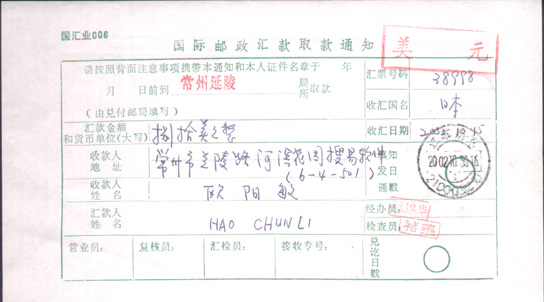 国汇业006
国际邮政汇款取款通知
美 元
请按照背面注意事项携带本通知和本人证件名章于 年
月 日前到 常州延陵 局所取款
(由兑付邮局填写)
汇票号码 38998
收汇国名 日本
收汇日期
汇款金额和货币单位(大写) 捌拾美元整
收款人地址 常州市延陵路河滨花园搜易软件
(6-4-501)
通知发日戳
收款人姓名 欧阳敏
汇款人姓名 HAO CHUNLI
经办员:
检查员:
营业员: 复核员: 汇检员: 接收专号: 兑讫日戳